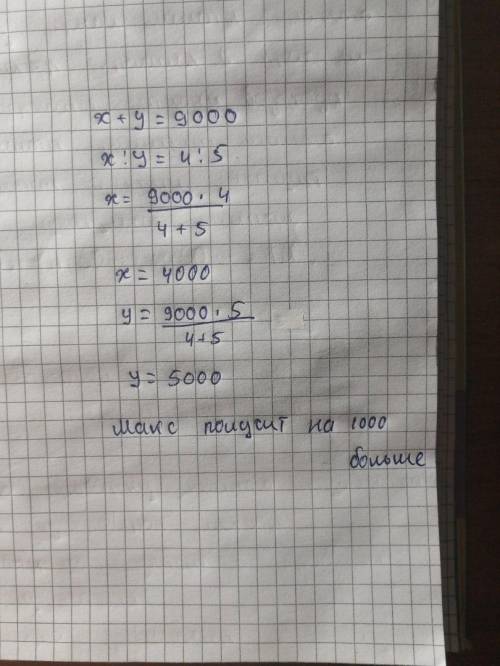 x + y = 9000
x : y = 4 : 5
x = 9000 · 4
4 + 5
x = 4000
y = 9000 · 5
4+5
y = 5000
Макс получит на 1000
больше